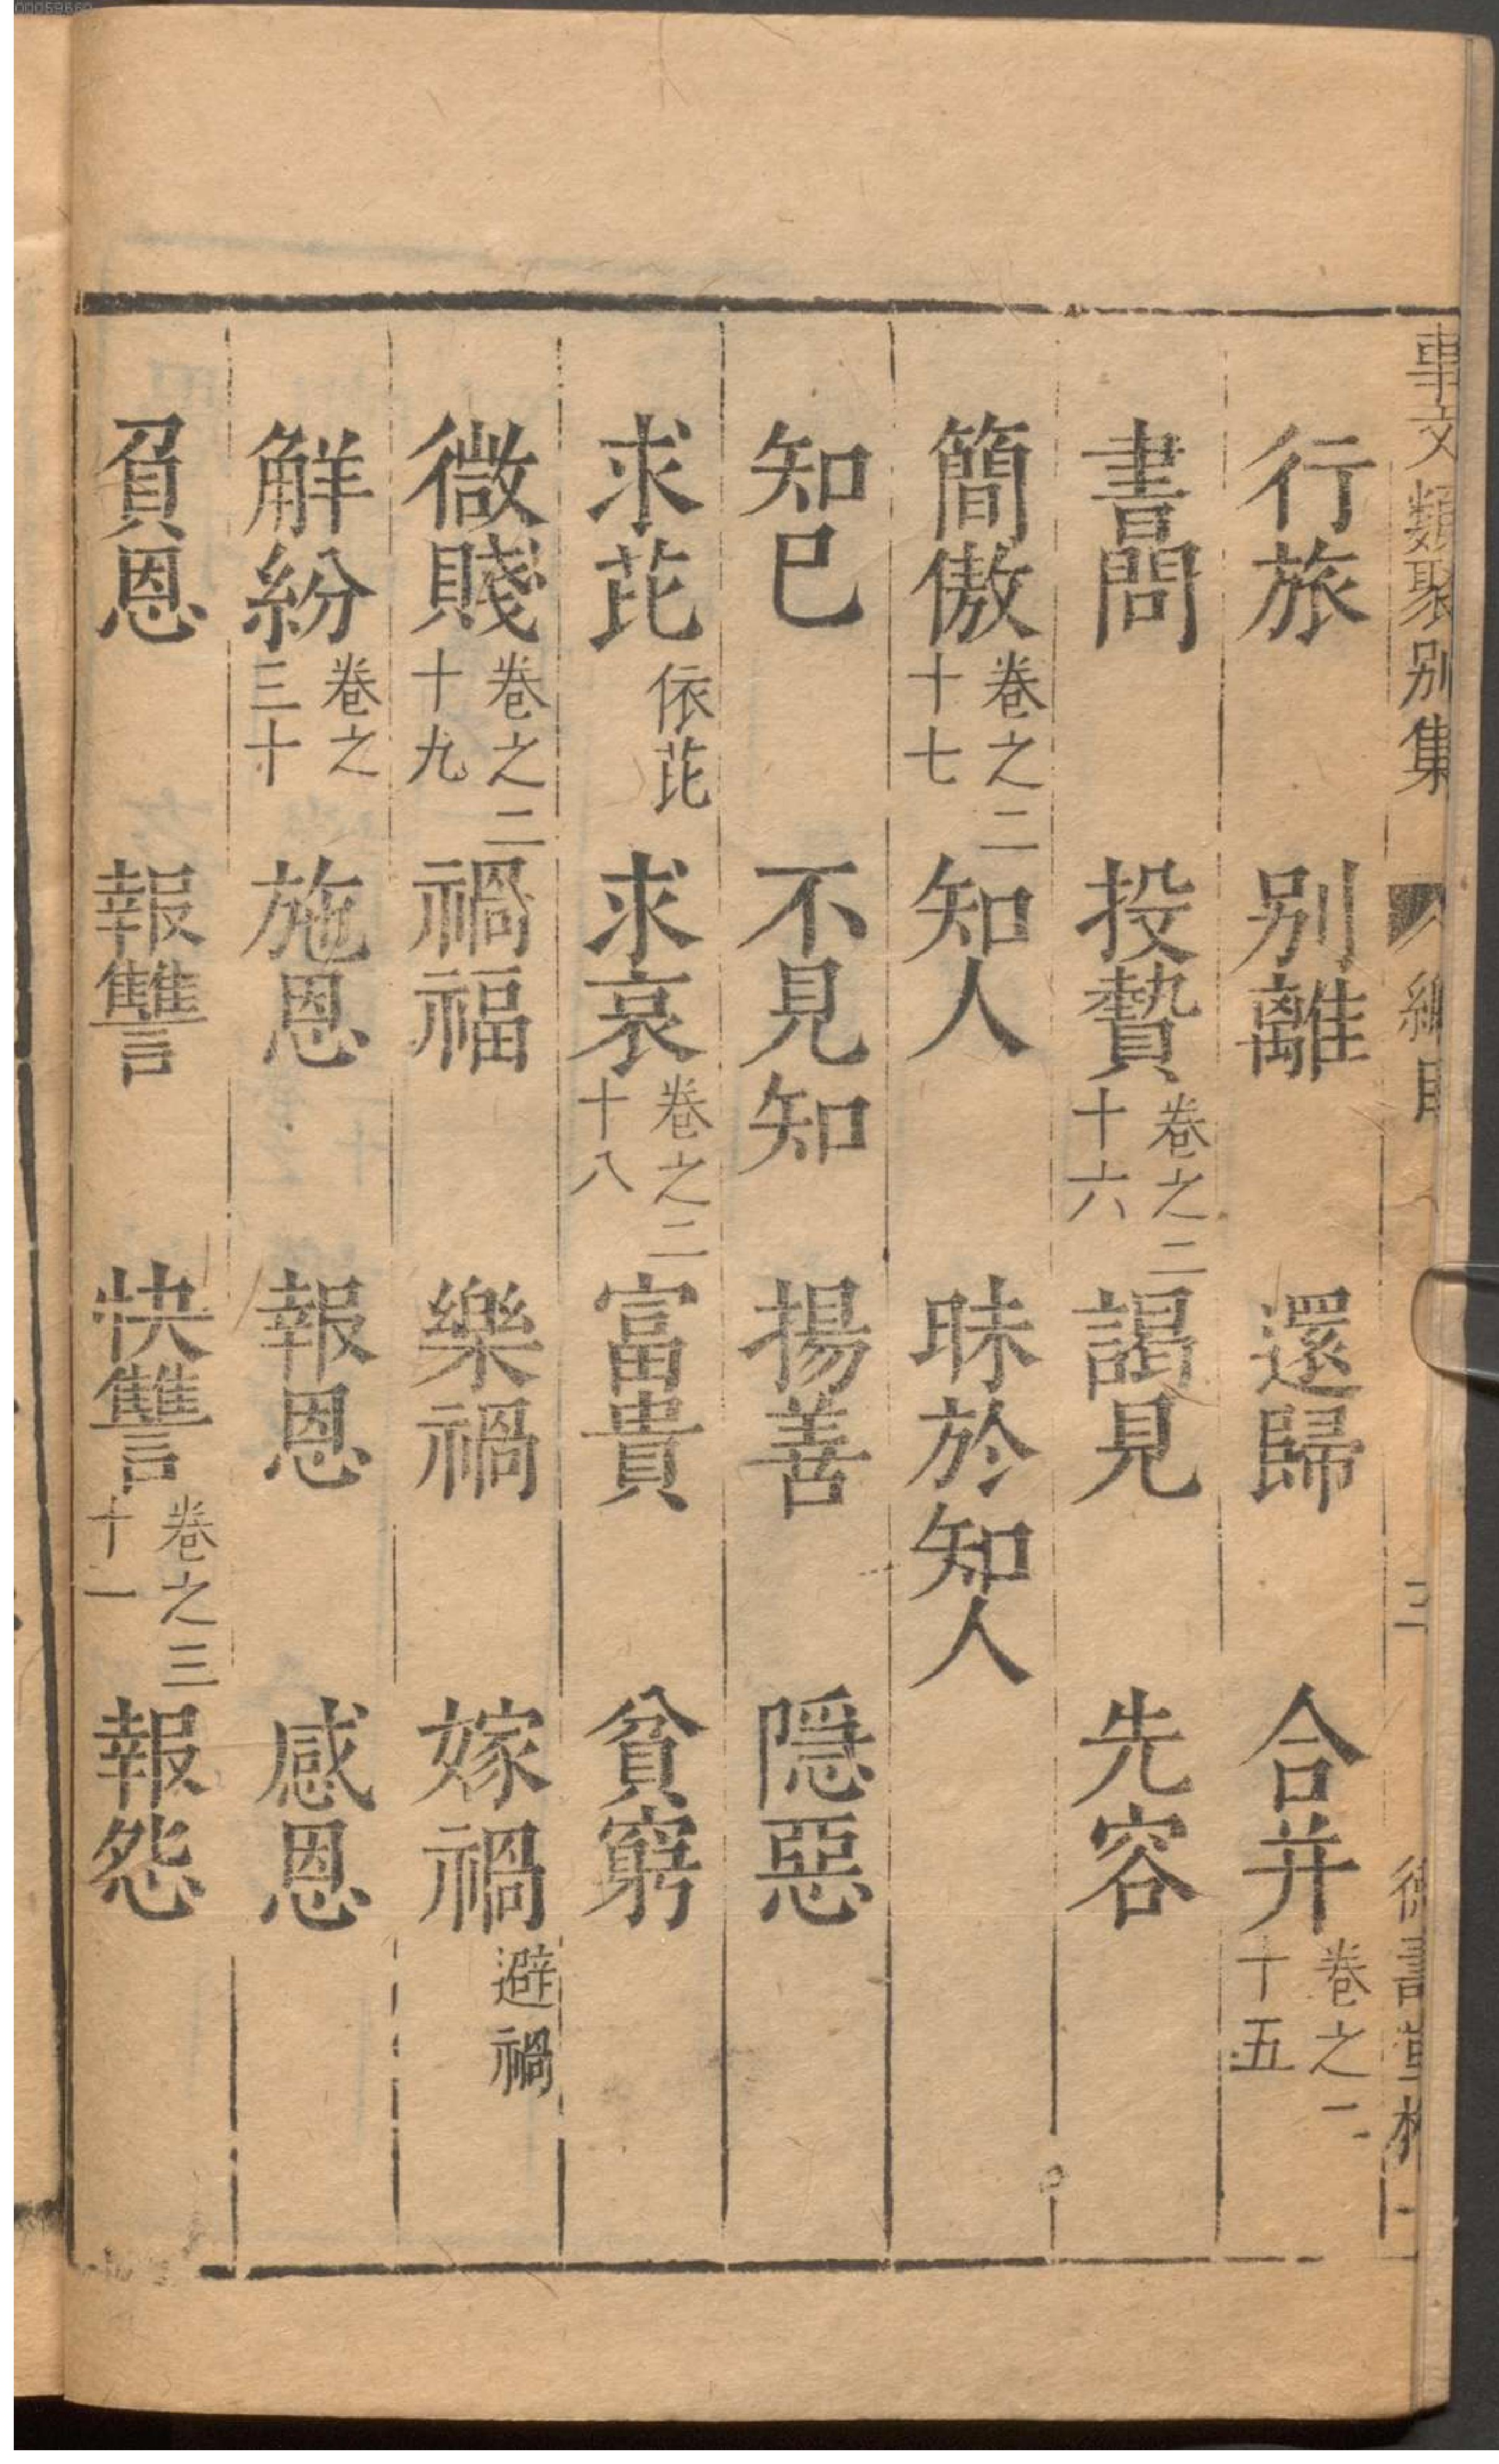 事文類聚别集 總目
行旅 别離 還歸 合并卷之二十五
書問 投贄卷之二十六 謁見 先容
簡傲卷之二十七 知人 昧於知人
知已 不見知 揚善 隱惡
求芘依芘 求哀卷之二十八 富貴 貧窮
微賤卷之二十九 禍福 樂禍 嫁禍避禍
觧紛卷之三十 施恩 報恩 感恩
負恩 報讐 快讐卷之三十一 報怨